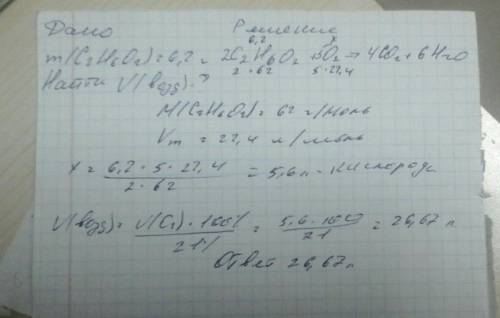 Дано Решение
6,2 x
m(C2H6O2)=6,2г 2C2H6O2 + 5O2 → 4CO2 + 6H2O
Найти V(возд)-? 2·62 5·22,4
M(C2H6O2)= 62 г/моль
Vm = 22,4 л/моль
x = 6,2·5·22,4 / 2·62 = 5,6л - кислорода
V(возд)= V(O2)·100% / 21% = 5.6·100 / 21 = 26,67 л
Ответ 26,67л